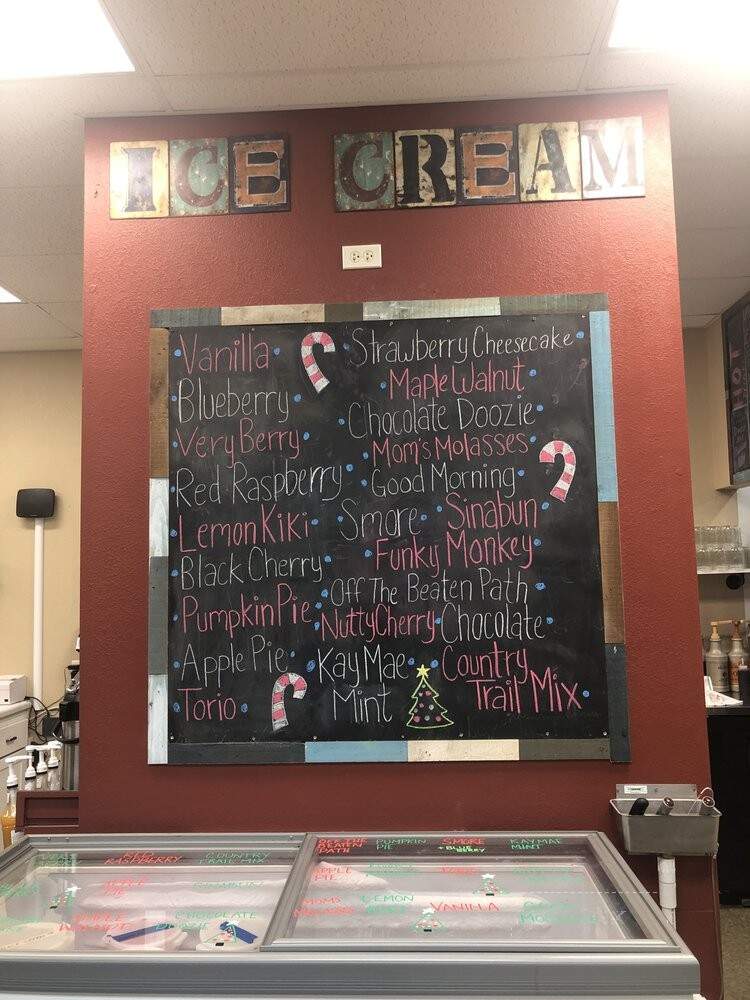 ICE CREAM
Vanilla
Blueberry
Very Berry
Red Raspberry
Lemon Kiki
Black Cherry
Pumpkin Pie
Apple Pie
Torio
Strawberry Cheesecake
Maple Walnut
Chocolate Doozie
Mom's Molasses
Good Morning
Smore Sinabun
Funky Monkey
Off The Beaten Path
Nutty Cherry Chocolate
Kay Mae Mint
Country Trail Mix
RED RASPBERRY
COUNTRY TRAIL MIX
CHOCOLATE
OFF THE BEATEN PATH
PUMPKIN PIE
SMORE
KAY MAE MINT
APPLE PIE
MOMS
LEMON
VANILLA